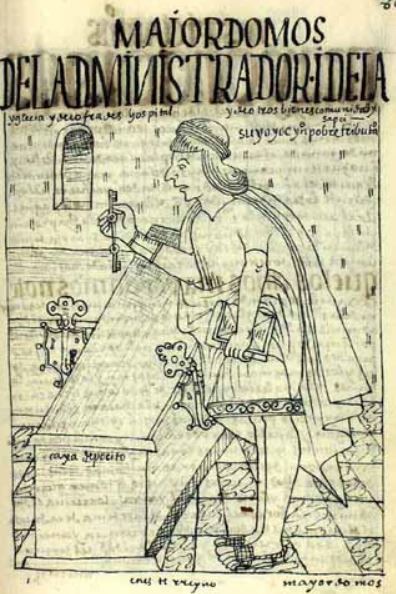 MAIORDOMOS
DELADMINISTRADOR·IDELA
yglecia y de cofrades hospital y de otros bienes comunidad y sapci
suyoyoc yn̄ pobre tributa
caxa deporito
en este rreyno
mayordomos